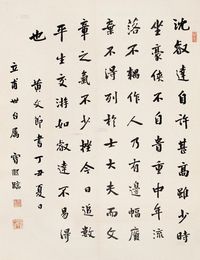 沈叡達自許甚高雖少時
坐豪俠不自貴重中年流
落不耦作人乃有邊幅廣
棄不得列於士大夫而文
章之氣不少挫今日追數
平生交游如叡達不易得
也
黃文節書丁丑夏日
立甫世台屬
寶熙臨